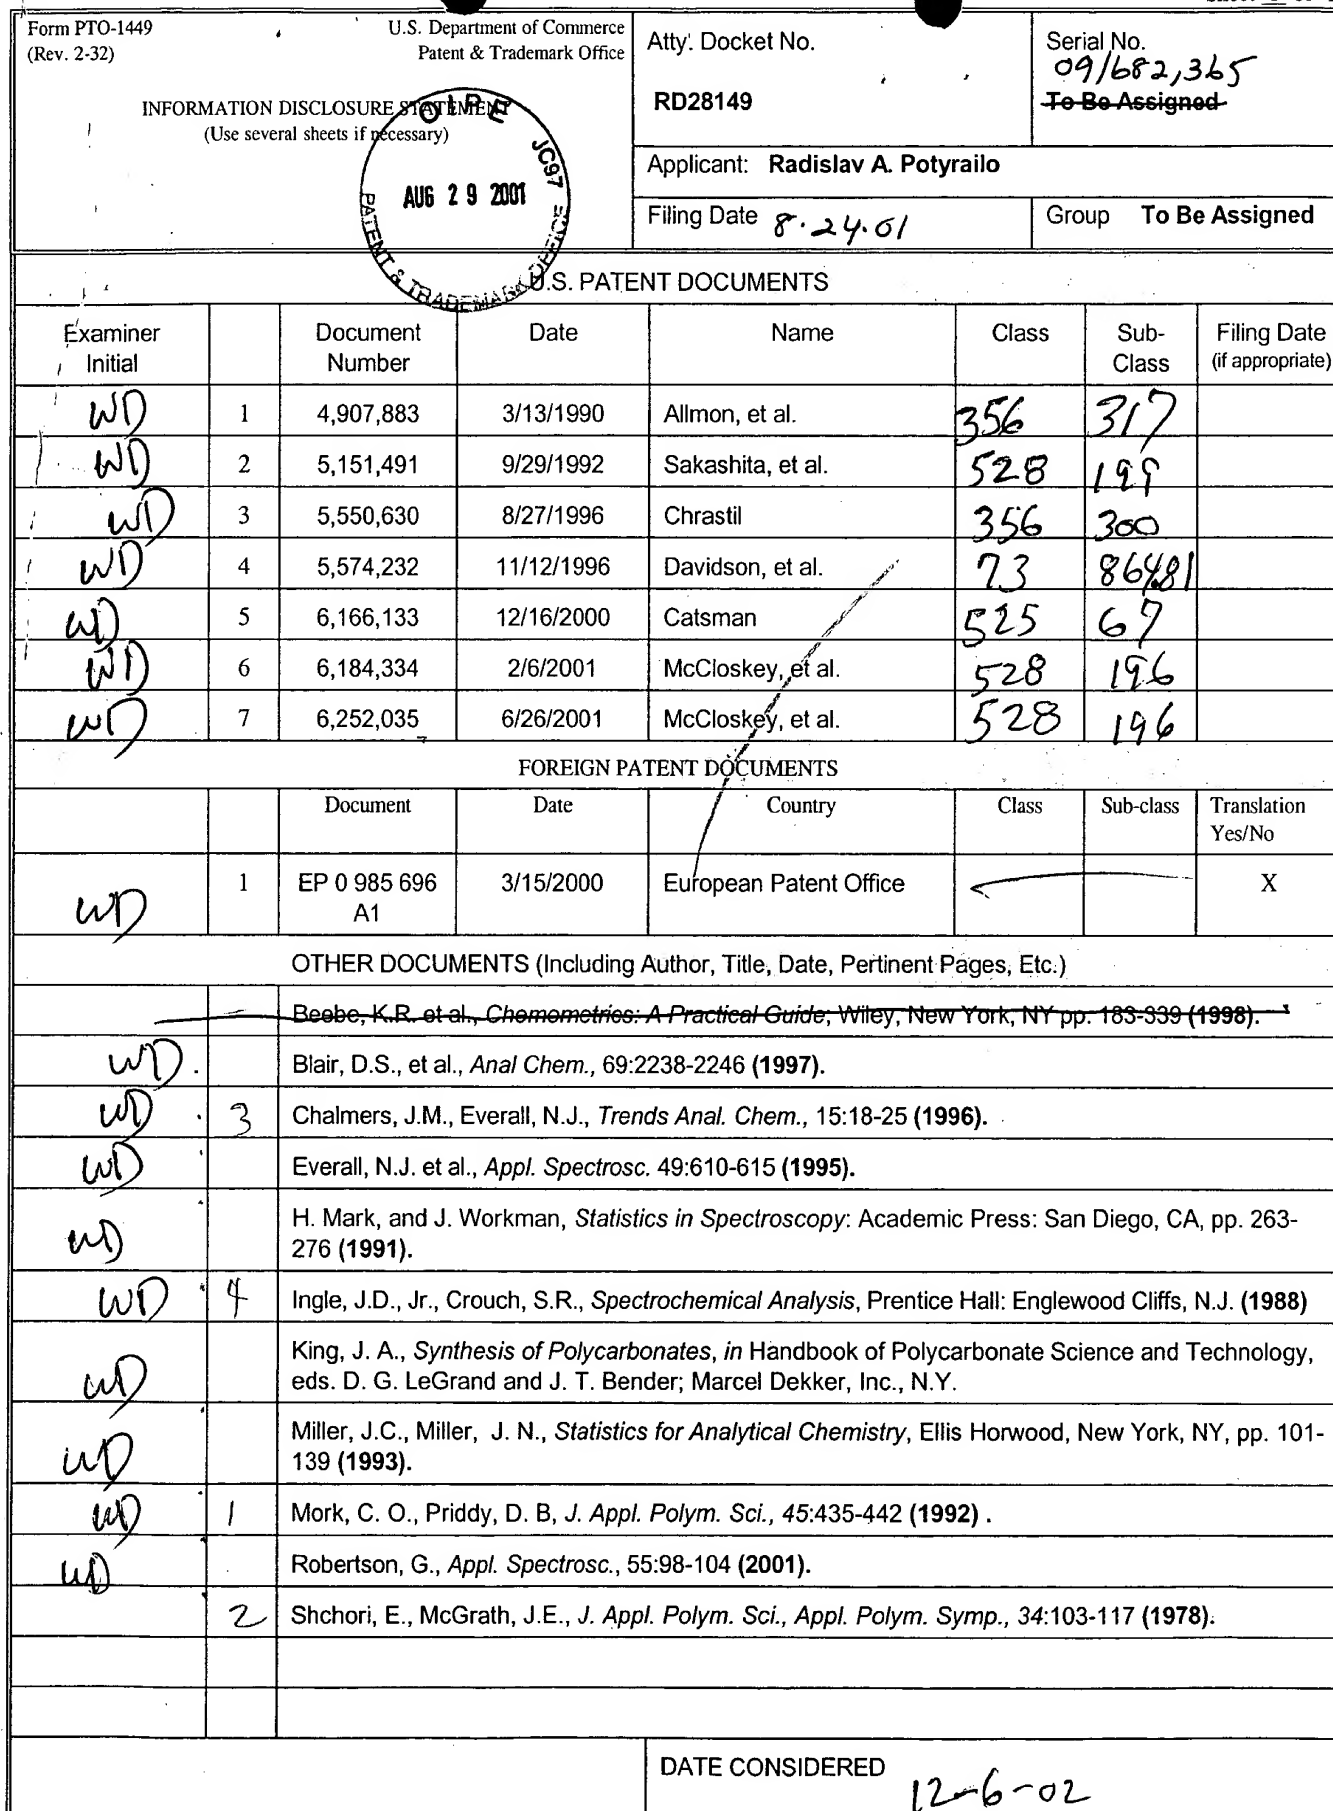 Form PTO-1449
(Rev. 2-32)
U.S. Department of Commerce
Patent & Trademark Office
INFORMATION DISCLOSURE STATEMENT
(Use several sheets if necessary)
OIPE JC97
AUG 29 2001
PATENT & TRADEMARK OFFICE
Atty. Docket No.
RD28149
Serial No.
09/682,365
To Be Assigned
Applicant: Radislav A. Potyrailo
Filing Date 8.24.01
Group To Be Assigned
U.S. PATENT DOCUMENTS
Examiner Initial Document Number Date Name Class Sub-Class Filing Date (if appropriate)
WD 1 4,907,883 3/13/1990 Allmon, et al. 356 317
WD 2 5,151,491 9/29/1992 Sakashita, et al. 528 199
WD 3 5,550,630 8/27/1996 Chrastil 356 300
WD 4 5,574,232 11/12/1996 Davidson, et al. 73 864.81
WD 5 6,166,133 12/16/2000 Catsman 525 67
WD 6 6,184,334 2/6/2001 McCloskey, et al. 528 196
WD 7 6,252,035 6/26/2001 McCloskey, et al. 528 196
FOREIGN PATENT DOCUMENTS
Document Date Country Class Sub-class Translation Yes/No
WD 1 EP 0 985 696 A1 3/15/2000 European Patent Office X
OTHER DOCUMENTS (Including Author, Title, Date, Pertinent Pages, Etc.)
Beebe, K.R. et al., Chemometrics: A Practical Guide; Wiley, New York, NY pp. 183-339 (1998).
WD Blair, D.S., et al., Anal Chem., 69:2238-2246 (1997).
WD 3 Chalmers, J.M., Everall, N.J., Trends Anal. Chem., 15:18-25 (1996).
WD Everall, N.J. et al., Appl. Spectrosc. 49:610-615 (1995).
WD H. Mark, and J. Workman, Statistics in Spectroscopy: Academic Press: San Diego, CA, pp. 263-
276 (1991).
WD 4 Ingle, J.D., Jr., Crouch, S.R., Spectrochemical Analysis, Prentice Hall: Englewood Cliffs, N.J. (1988)
WD King, J. A., Synthesis of Polycarbonates, in Handbook of Polycarbonate Science and Technology,
eds. D. G. LeGrand and J. T. Bender; Marcel Dekker, Inc., N.Y.
WD Miller, J.C., Miller, J. N., Statistics for Analytical Chemistry, Ellis Horwood, New York, NY, pp. 101-
139 (1993).
WD 1 Mork, C. O., Priddy, D. B, J. Appl. Polym. Sci., 45:435-442 (1992) .
WD Robertson, G., Appl. Spectrosc., 55:98-104 (2001).
2 Shchori, E., McGrath, J.E., J. Appl. Polym. Sci., Appl. Polym. Symp., 34:103-117 (1978).
DATE CONSIDERED
12-6-02